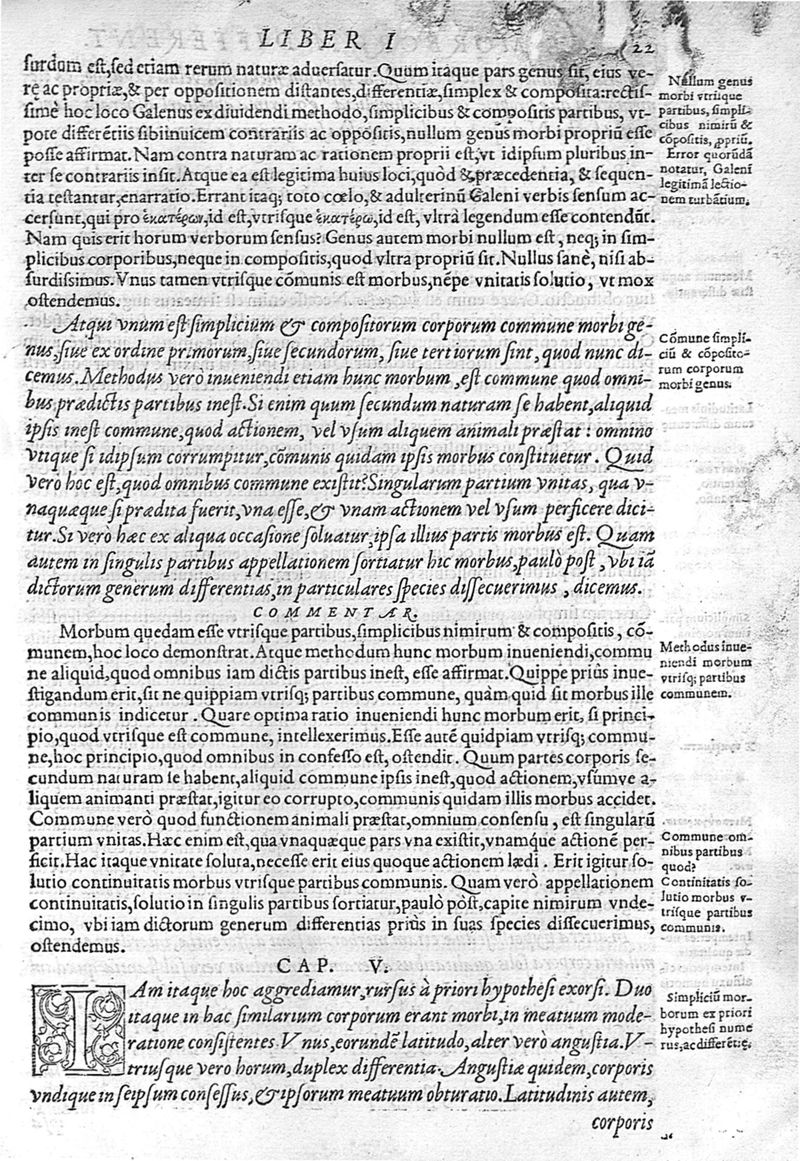 LIBER I
22
surdum est, sed etiam rerum naturæ aduersatur. Quum itaque pars genus sit, eius ve-
rę ac propriæ, & per oppositionem distantes, differentiæ, simplex & composita: rectis-
simè hoc loco Galenus ex diuidendi methodo, simplicibus & compositis partibus, vt-
pote differētiis sibiinuicem contrariis ac oppositis, nullum genus morbi propriū esse
posse affirmat. Nam contra naturam ac rationem proprii est, vt idipsum pluribus in-
ter se contrariis insit. Atque ea est legitima huius loci, quòd & præcedentia, & sequen-
tia testantur, enarratio. Errant itaq; toto cœlo, & adulterinū Galeni verbis sensum ac-
cersunt, qui pro ἑκατέρων, id est, vtrisque ἑκατέρω, id est, vltrà legendum esse contendūt.
Nam quis erit horum verborum sensus? Genus autem morbi nullum est, neq; in sim-
plicibus corporibus, neque in compositis, quod vltra propriū sit. Nullus sanè, nisi ab-
surdissimus. Vnus tamen vtrisque cōmunis est morbus, nēpe vnitatis solutio, vt mox
ostendemus.
Nullum genus
morbi vtriíque
partibus, simpli-
cibus nimirū &
cōpositis, ꝓpriū.
Error quorūdā
notatur, Galeni
legitimā lectio-
nem turbātium.
Atqui vnum est simplicium & compositorum corporum commune morbi ge-
nus, siue ex ordine primorum, siue secundorum, siue tertiorum sint, quod nunc di-
cemus. Methodus verò inueniendi etiam hunc morbum, est commune quod omni-
bus prædictis partibus inest. Si enim quum secundum naturam se habent, aliquid
ipsis inest commune, quod actionem, vel vsum aliquem animali præstat: omnino
vtique si idipsum corrumpitur, cōmunis quidam ipsis morbus constituetur. Quid
verò hoc est, quod omnibus commune existit? Singularum partium vnitas, qua v-
naquæque si prædita fuerit, vna esse, & vnam actionem vel vsum perficere dici-
tur. Si verò hæc ex aliqua occasione soluatur, ipsa illius partis morbus est. Quam
autem in singulis partibus appellationem sortiatur hic morbus, paulò post, vbi iā
dictorum generum differentias, in particulares species dissecuerimus, dicemus.
Cōmune simpli-
ciū & cōposito-
rum corporum
morbi genus.
COMMENTAR.
Morbum quedam esse vtrisque partibus, simplicibus nimirum & compositis, cō-
munem, hoc loco demonstrat. Atque methodum hunc morbum inueniendi, commu
ne aliquid, quod omnibus iam dictis partibus inest, esse affirmat. Quippe priùs inue-
stigandum erit, sit ne quippiam vtrisq; partibus commune, quàm quid sit morbus ille
communis indicetur. Quare optima ratio inueniendi hunc morbum erit, si princi-
pio, quod vtrisque est commune, intellexerimus. Esse autē quidpiam vtrisq; commu-
ne, hoc principio, quod omnibus in confesso est, ostendit. Quum partes corporis se-
cundum naturam se habent, aliquid commune ipsis inest, quod actionem, vsúmve a-
liquem animanti præstat, igitur eo corrupto, communis quidam illis morbus accidet.
Commune verò quod functionem animali præstat, omnium consensu, est singularū
partium vnitas. Hæc enim est, qua vnaquæque pars vna existit, vnamq́ue actionē per-
ficit. Hac itaque vnitate soluta, necesse erit eius quoque actionem lædi. Erit igitur so-
lutio continuitatis morbus vtrisque partibus communis. Quam verò appellationem
continuitatis, solutio in singulis partibus sortiatur, paulò pòst, capite nimirum vnde-
cimo, vbi iam dictorum generum differentias priùs in suas species dissecuerimus,
ostendemus.
Methodus inue-
niendi morbum
vtrisq; partibus
communem.
Commune om-
nibus partibus
quod?
Continitatis so-
lutio morbus v-
trisque partibus
communis.
CAP. V.
IAm itaque hoc aggrediamur, rursus à priori hypothesi exorsi. Duo
itaque in hac similarium corporum erant morbi, in meatuum mode-
ratione consistentes. Vnus, eorundē latitudo, alter verò angustia. V-
triusque vero horum, duplex differentia. Angustiæ quidem, corporis
vndique in seipsum consessus, & ipsorum meatuum obturatio. Latitudinis autem,
corporis
Simpliciū mor-
borum ex priori
hypothesi nume
rus, ac differētię.